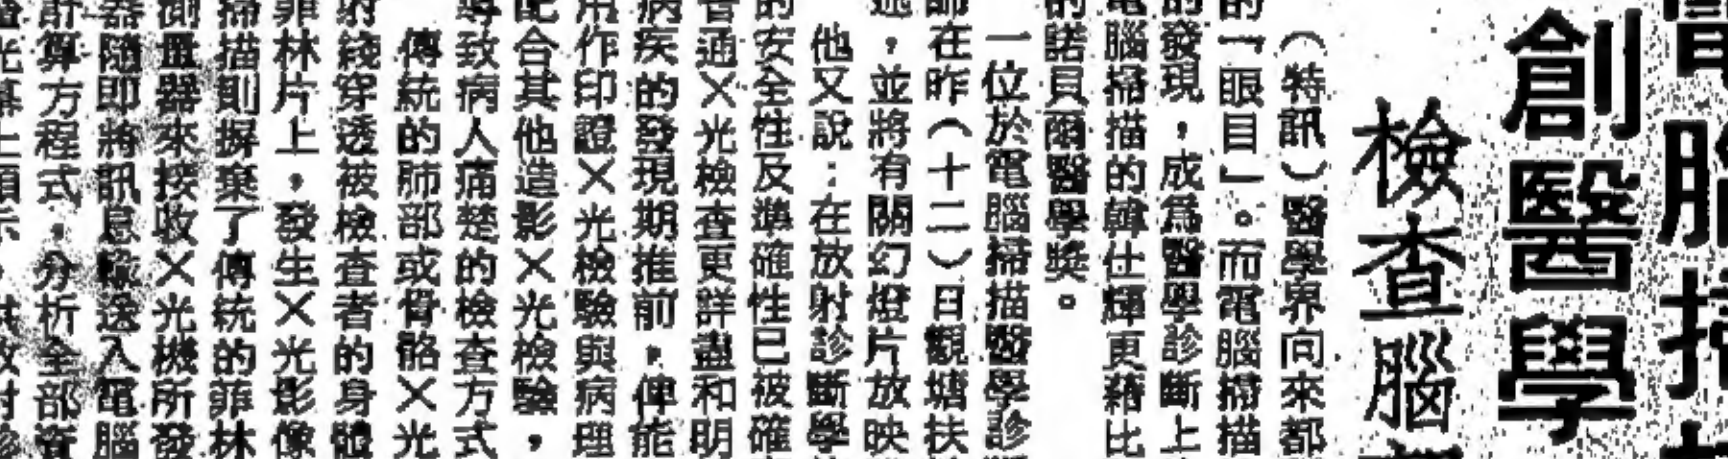 腦
創醫學
檢查腦
（特訊）醫學界向來都
的「眼目」。而電腦掃描
的發現，成爲醫學診斷上
電腦掃描的韓仕輝更藉比
的諾貝爾醫學獎。
一位於電腦掃描醫學診
師在昨（十二）日觀塘扶
，並將有關幻燈片放映
他又說：在放射診斷學
的安全性及準確性已被確
普通X光檢查更詳盡和明
病疾的發現期推前，俾能
用作印證X光檢驗與病理
配合其他造影X光檢驗，
導致病人痛楚的檢查方式
傳統的肺部或骨骼X光
射綫穿透被檢查者的身體
菲林片上，發生X光影像
掃描則摒棄了傳統的菲林
測量器來接收X光機所發
器隨即將訊息輸送入電腦
計算方程式，分析全部資